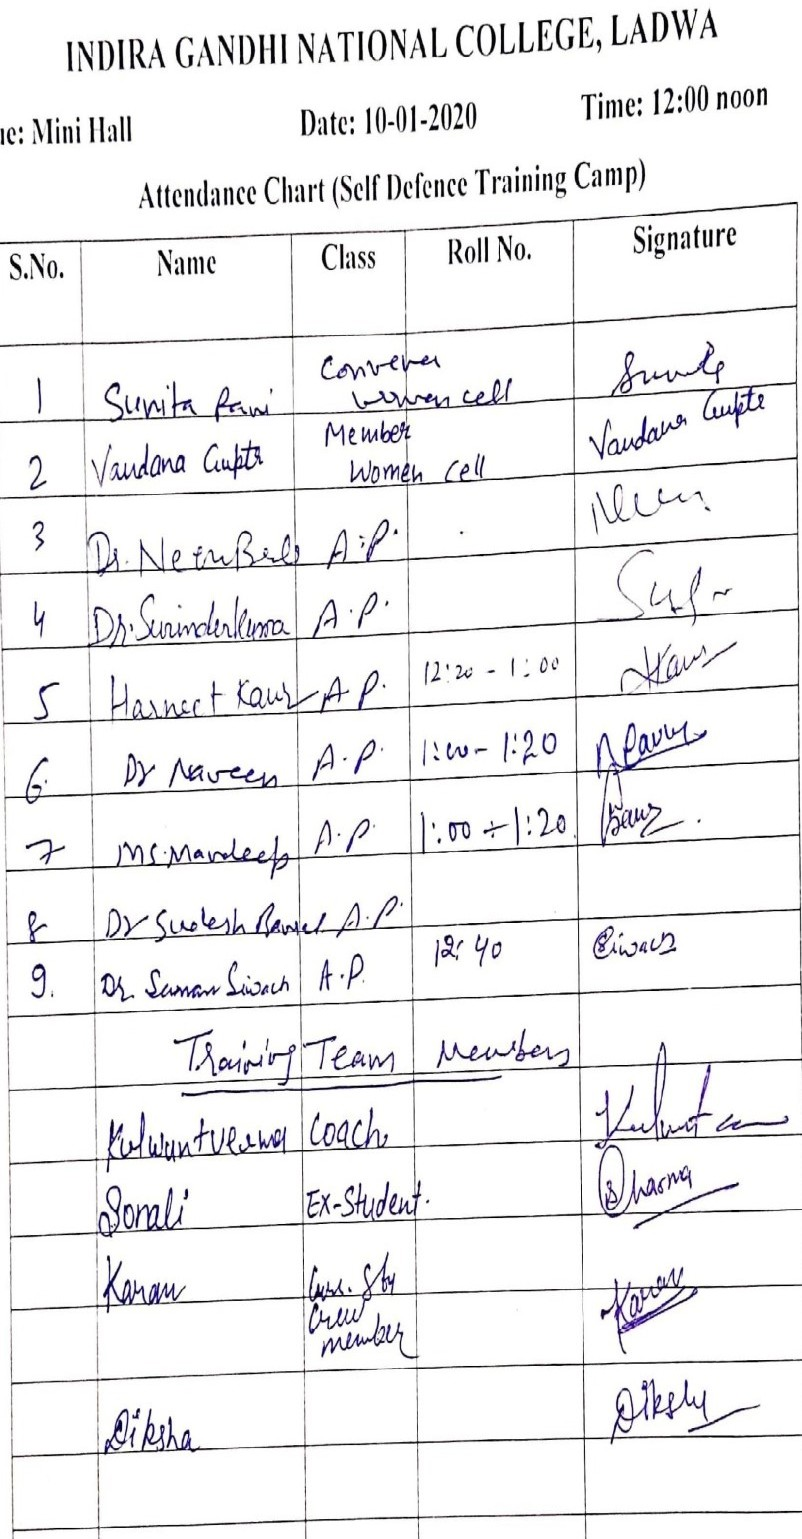 INDIRA GANDHI NATIONAL COLLEGE, LADWA
ue: Mini Hall Date: 10-01-2020 Time: 12:00 noon
Attendance Chart (Self Defence Training Camp)
S.No. Name Class Roll No. Signature
1 Sunita Rani Convener
Women cell
2 Vandana Gupta Member Vandana Gupta
Women cell
3 Dr. Neeru Bala A.P.
4 Dr. Surinder Kumar A.P.
5 Harneet Kaur A.P. 12:20 - 1:00 Kaur
6. Dr Naveen A.P. 1:00 - 1:20
7 Ms. Mandeep A.P. 1:00 - 1:20
8 Dr Sudesh Bansal A.P.
9. Dr. Suman Siwach A.P. 12:40 Siwach
Training Team Members
Kulwant Verma Coach
Sonali Ex-Student. Sharma
Karan Karan
Crew
member
Diksha Diksha